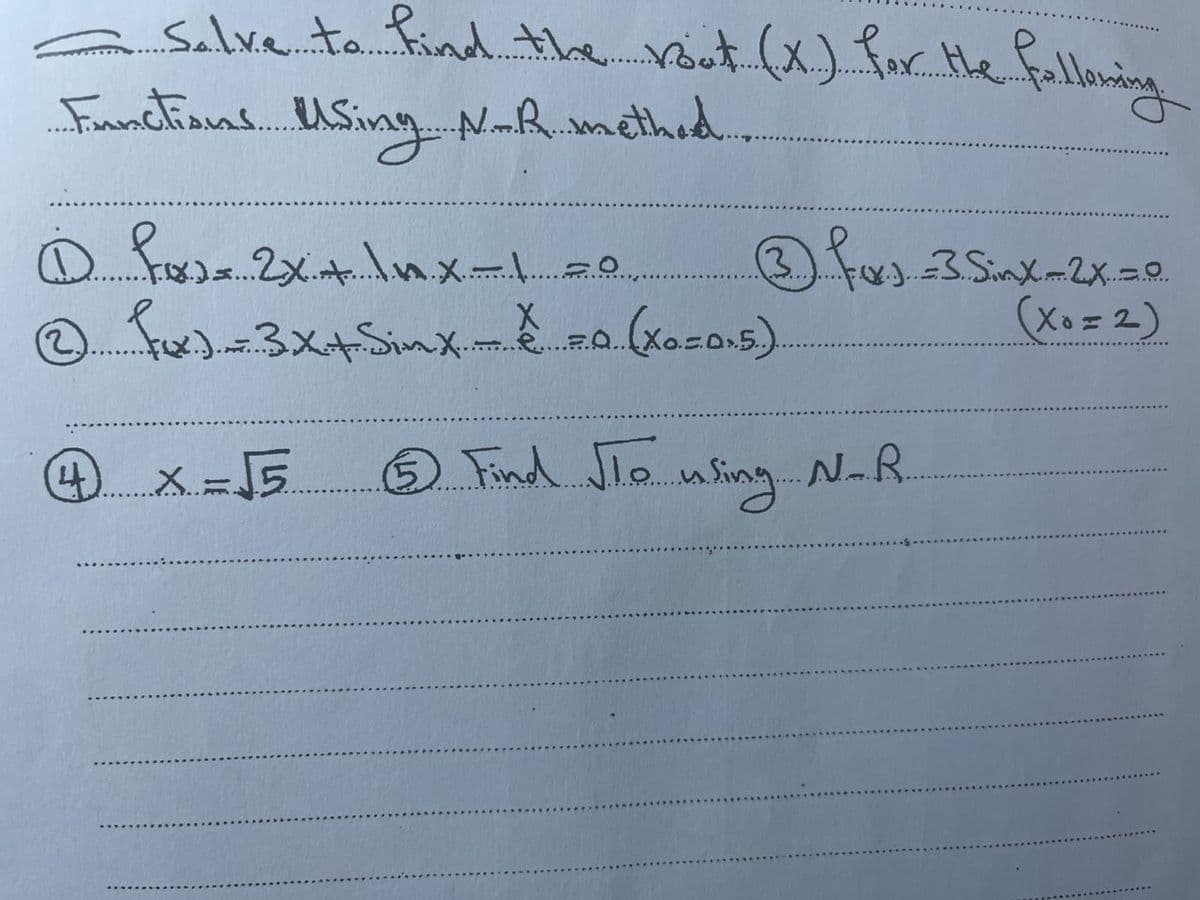 = Solve to find the root (x) for the following
Functions Using N-R method.
① f(x)= 2x + lnx - 1 = 0
③ f(x) = 3 Sinx - 2x = 0
(x₀ = 2)
② f(x) = 3x + Sinx - eˣ = 0 (x₀ = 0.5)
④ x = √5
⑤ Find √10 using N-R